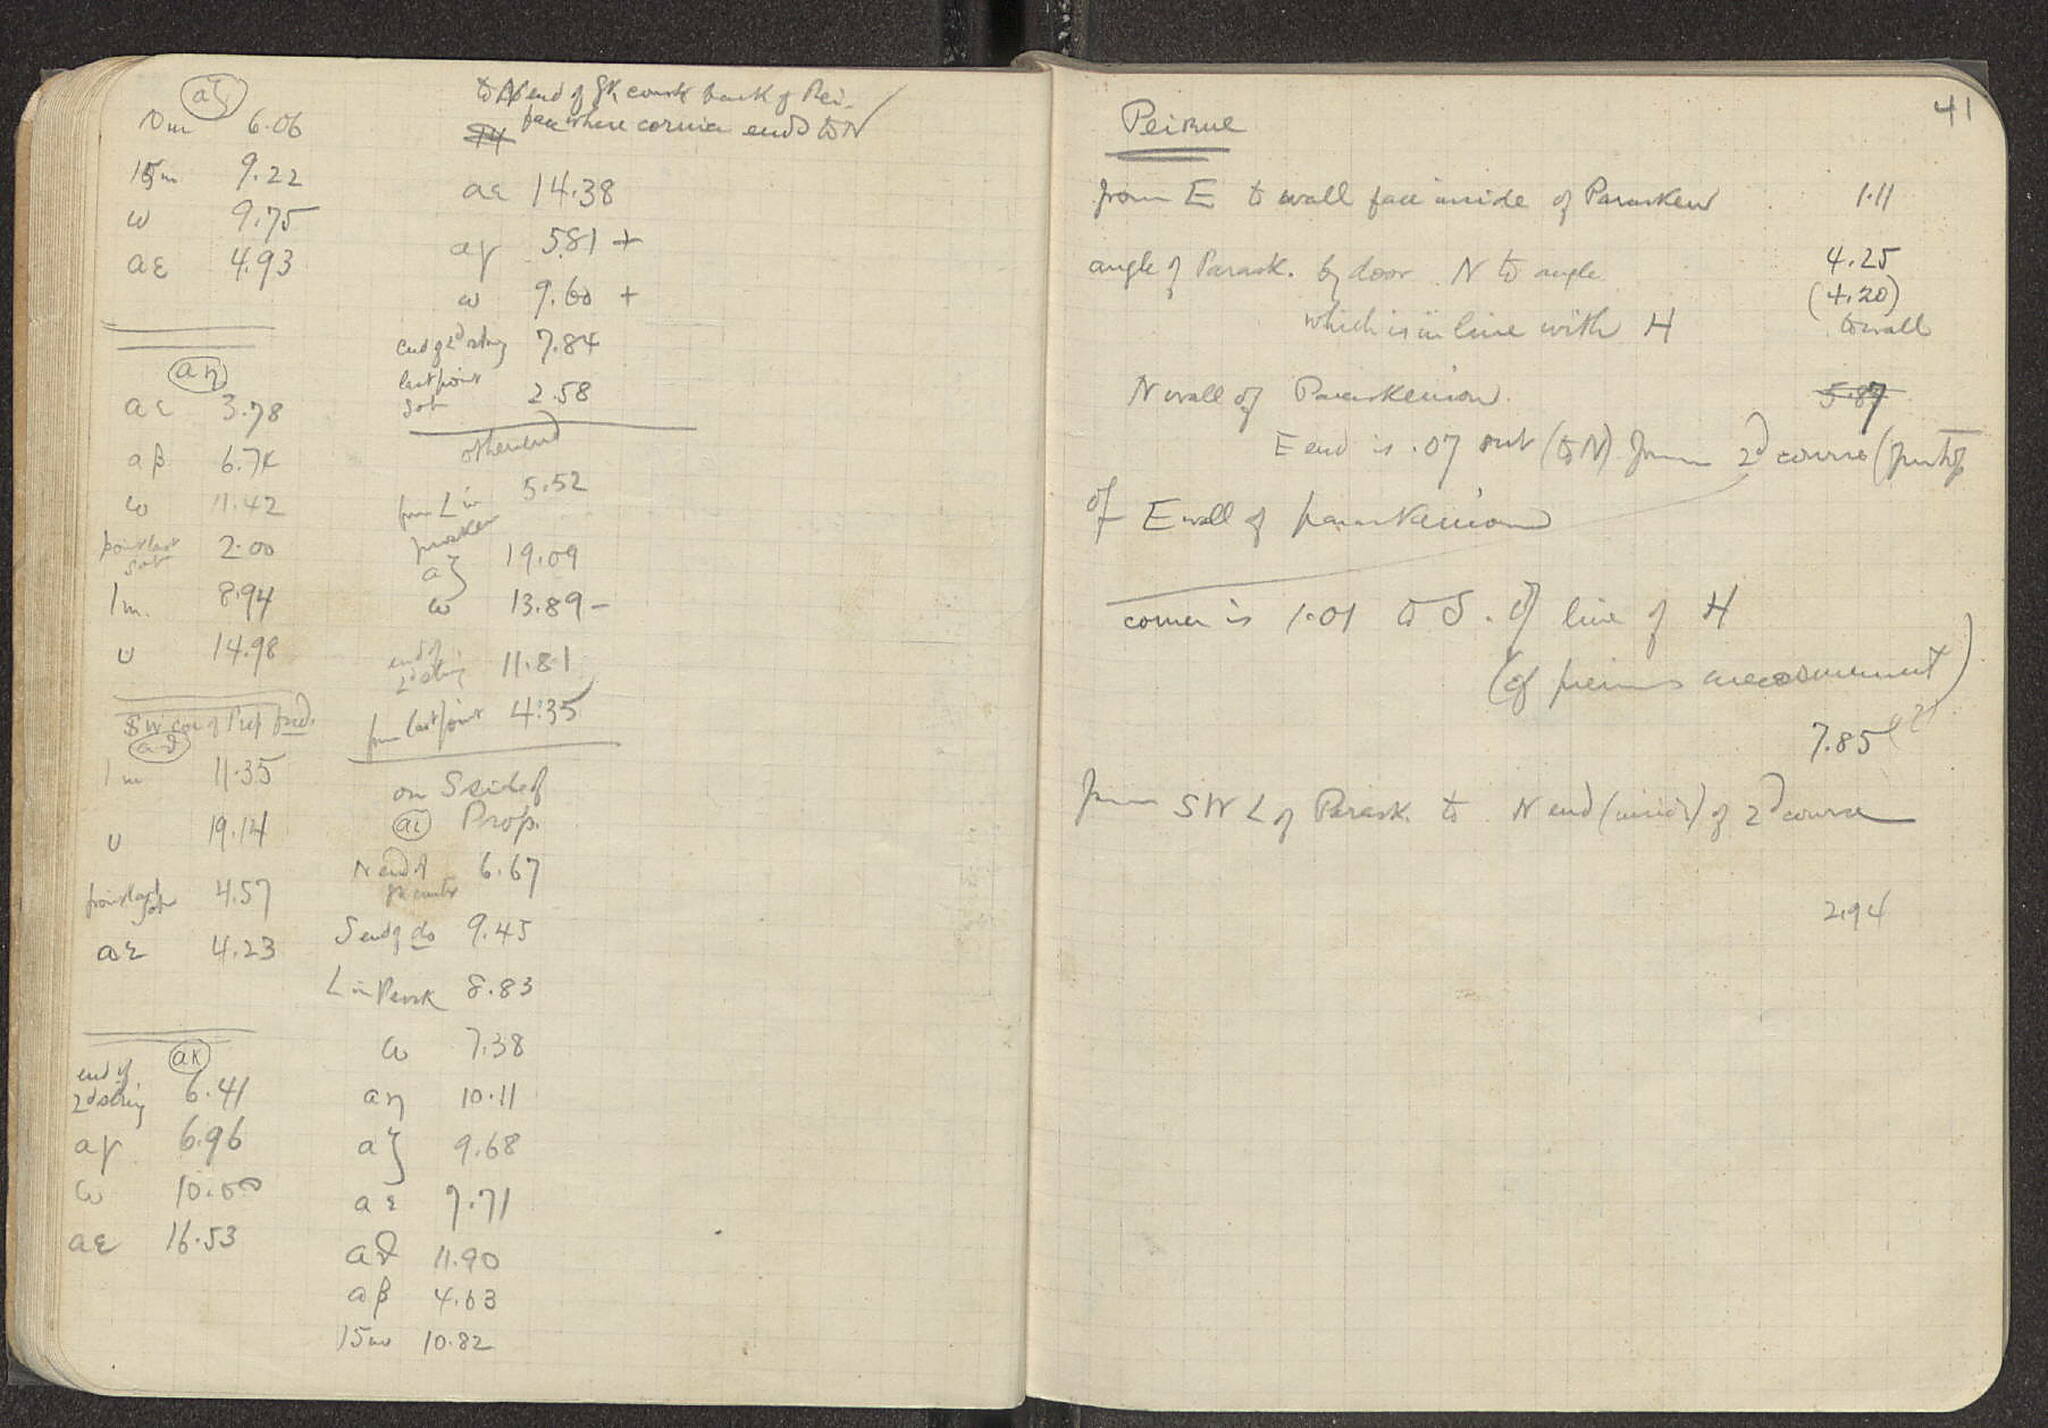 αζ
10m 6.06
15m 9.22
ω 9.75
αε 4.93
αη
αε 3.78
αβ 6.74
ω 11.42
point last 2.00
1m. 8.94
υ 14.98
SW cor of Prop
1m 11.35
υ 19.14
4.57
αε 4.23
ακ
end of
2d string 6.41
αγ 6.96
ω 10.00
αε 16.53
to N end of Gk course back of Pei-
face where cornice ends to N
αε 14.38
αγ 5.81 +
ω 9.60 +
end of 2d string 7.84
last point
2.58
other end
from L in 5.52
αζ 19.09
ω 13.89 -
end of
2d string 11.81
from last point 4.35
on S side of
αι Prop.
N end of 6.67
S end of do 9.45
L in 8.83
ω 7.38
αη 10.11
αζ 9.68
αε 7.71
αδ 11.90
αβ 4.63
15m 10.82
41
Peirene
from E to wall face inside of Parasken 1.11
angle of Parask. by door N to angle 4.25
(4.20)
which is in line with H to wall
N wall of Paraskenion 5.87
E end is .07 out (to N) from 2d course
of E wall of paraskenion
corner is 1.01 to S. of line of H
(of previous measurement)
7.85 (?)
from SW L of Parask. to N end (inside) of 2d course
2.94